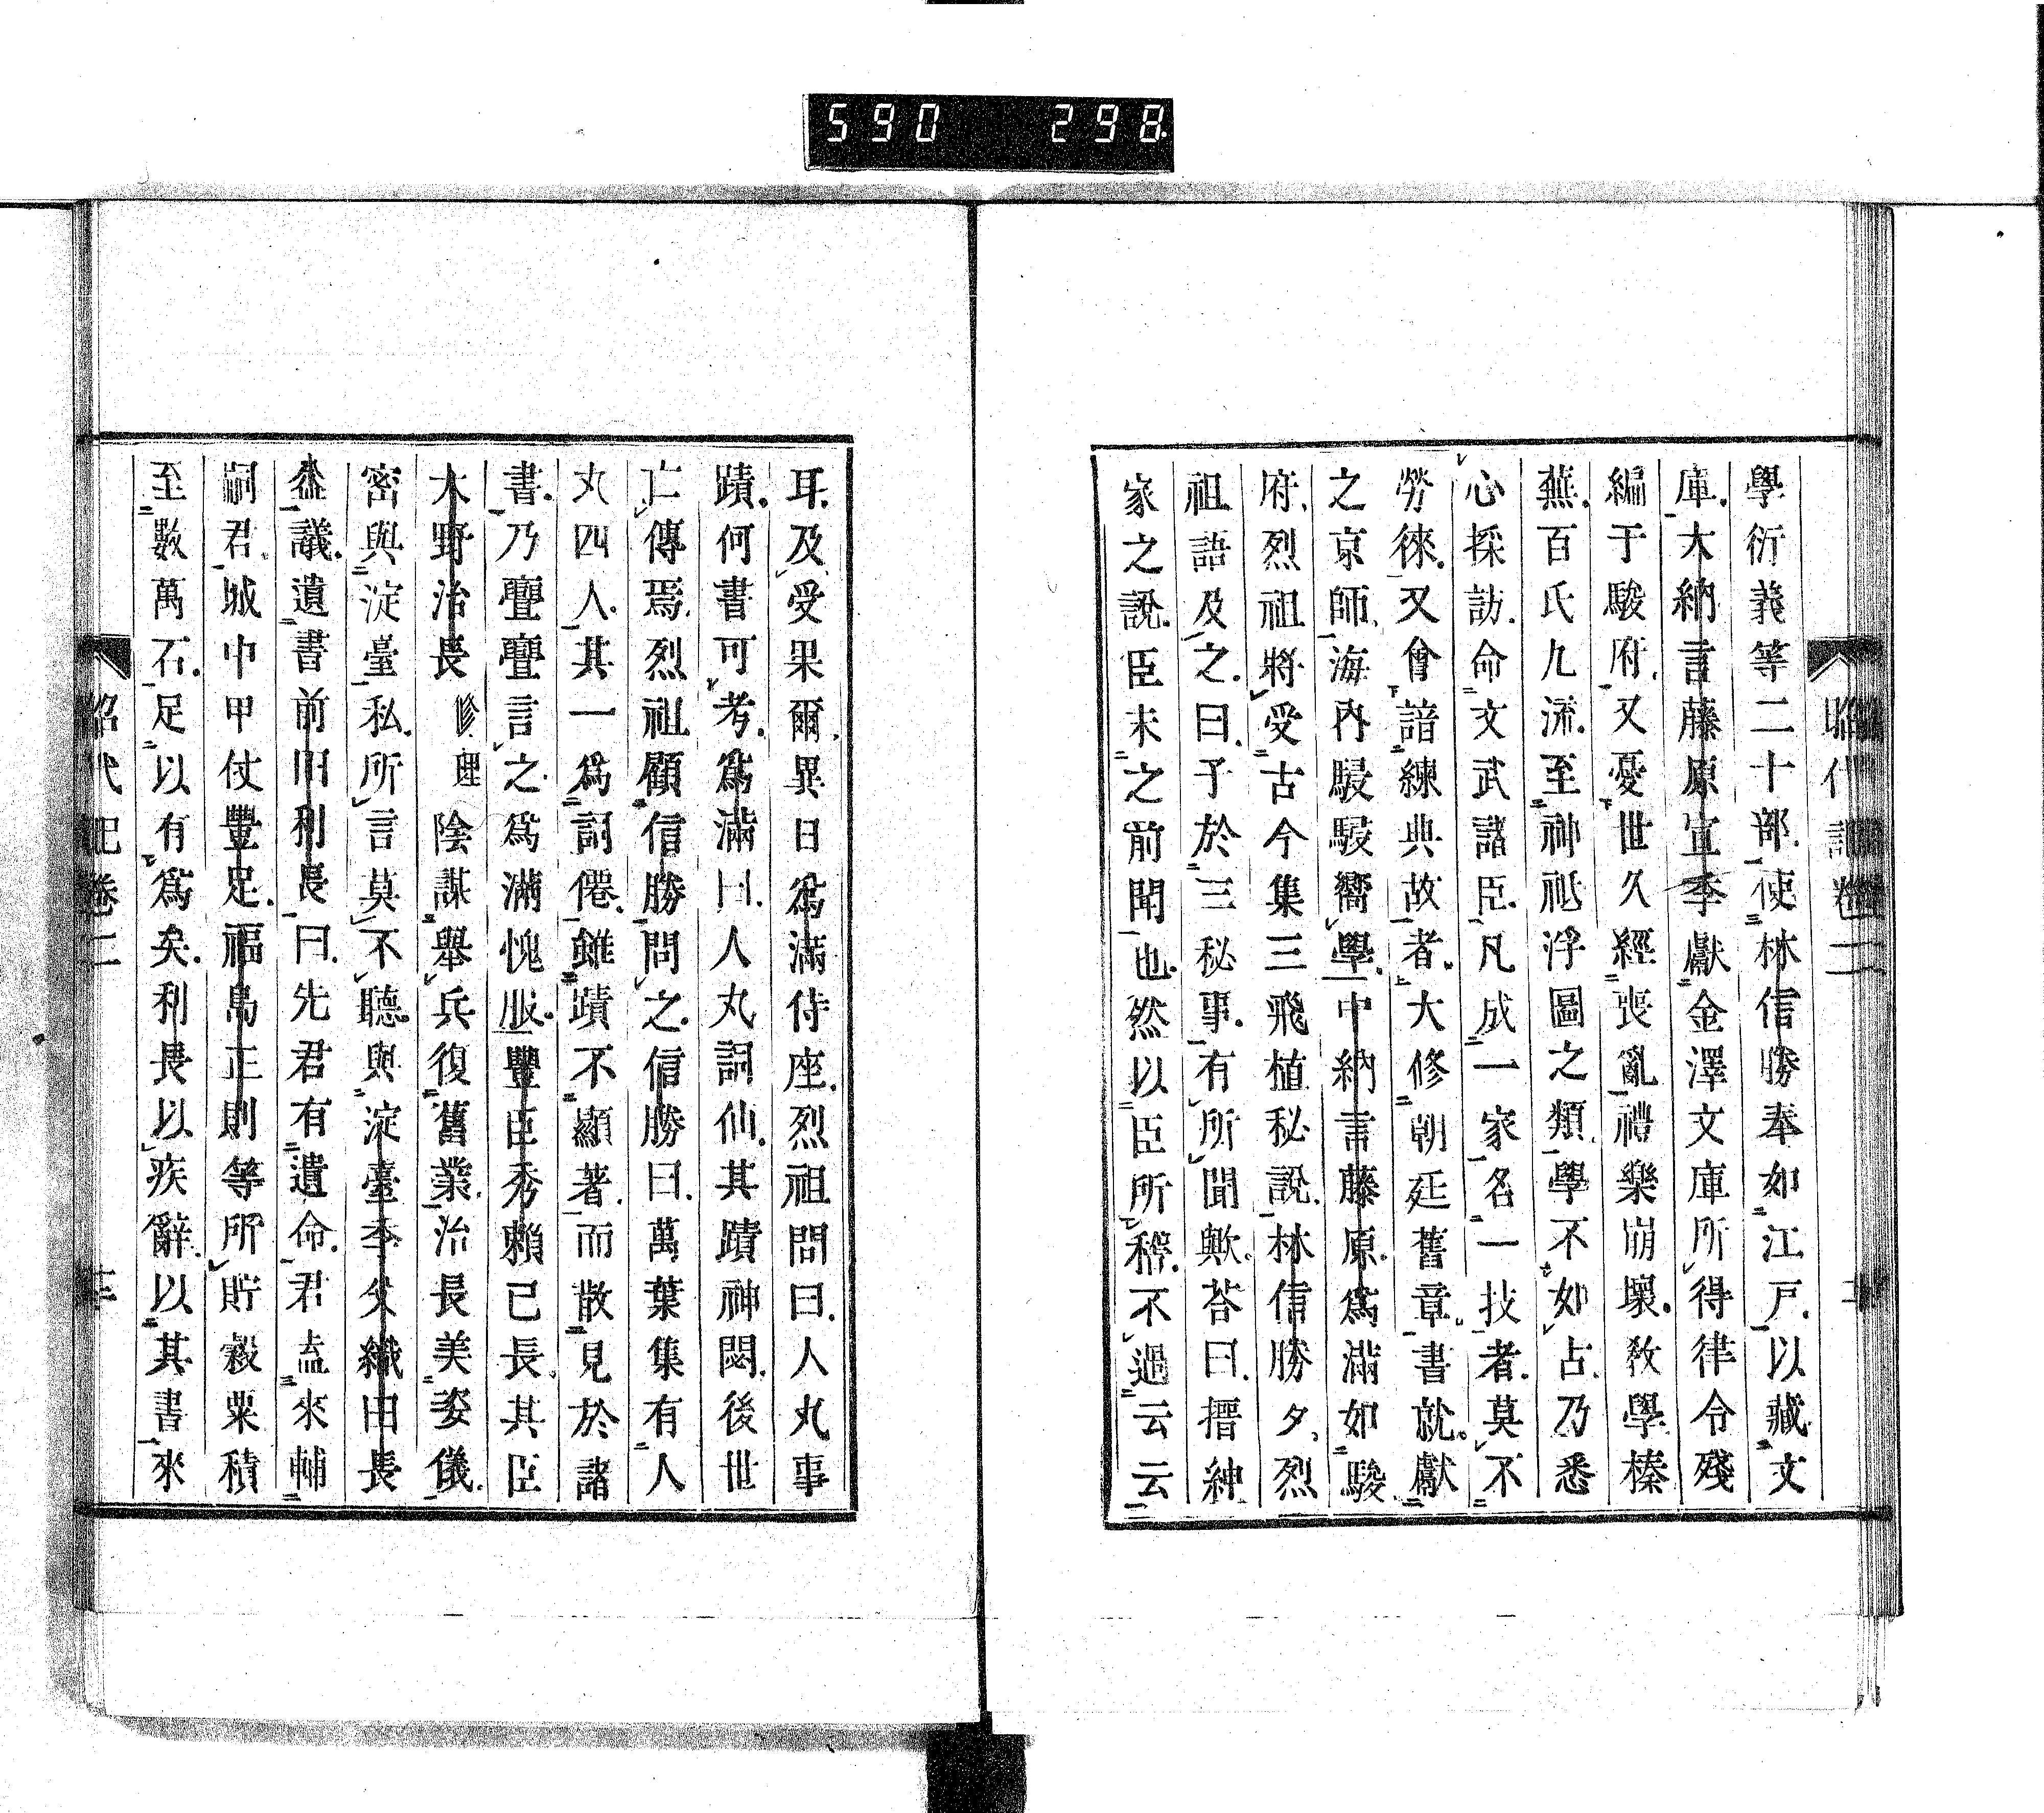 590 298
昭代記卷二
學衍義等二十部使林信勝奉如江戸以藏文
庫大納言藤原宣季獻金澤文庫所得律令殘
編于駿府又憂世久經喪亂禮樂崩壞教學榛
蕪百氏九流至神祕浮圖之類學不如占乃悉
心採訪命文武諸臣凡成一家名一技者莫不
勞徠又會諳練典故者大修朝廷舊章書就獻
之京師海內駸駸嚮學中納言藤原爲滿如駿
府烈祖將受古今集三飛植秘說林信勝夕烈
祖語及之曰予於三秘事有所聞歟荅曰搢紳
家之說臣未之前聞也然以臣所稽不過云云
耳及受果爾異日爲滿侍座烈祖問曰人丸事
蹟何書可考爲滿曰人丸詞仙其蹟神閟後世
亡傳焉烈祖顧信勝問之信勝曰萬葉集有人
丸四人其一爲詞僊雖蹟不顯著而散見於諸
書乃亹亹言之爲滿愧服豐臣秀賴已長其臣
大野治長修理陰謀舉兵復舊業治長美姿儀
密與淀臺私所言莫不聽與淀臺季父織田長
益議遺書前田利長曰先君有遺命君盍來輔
嗣君城中甲仗豐足福島正則等所貯穀粟積
至數萬石足以有爲矣利長以疾辭以其書來
昭代記卷二